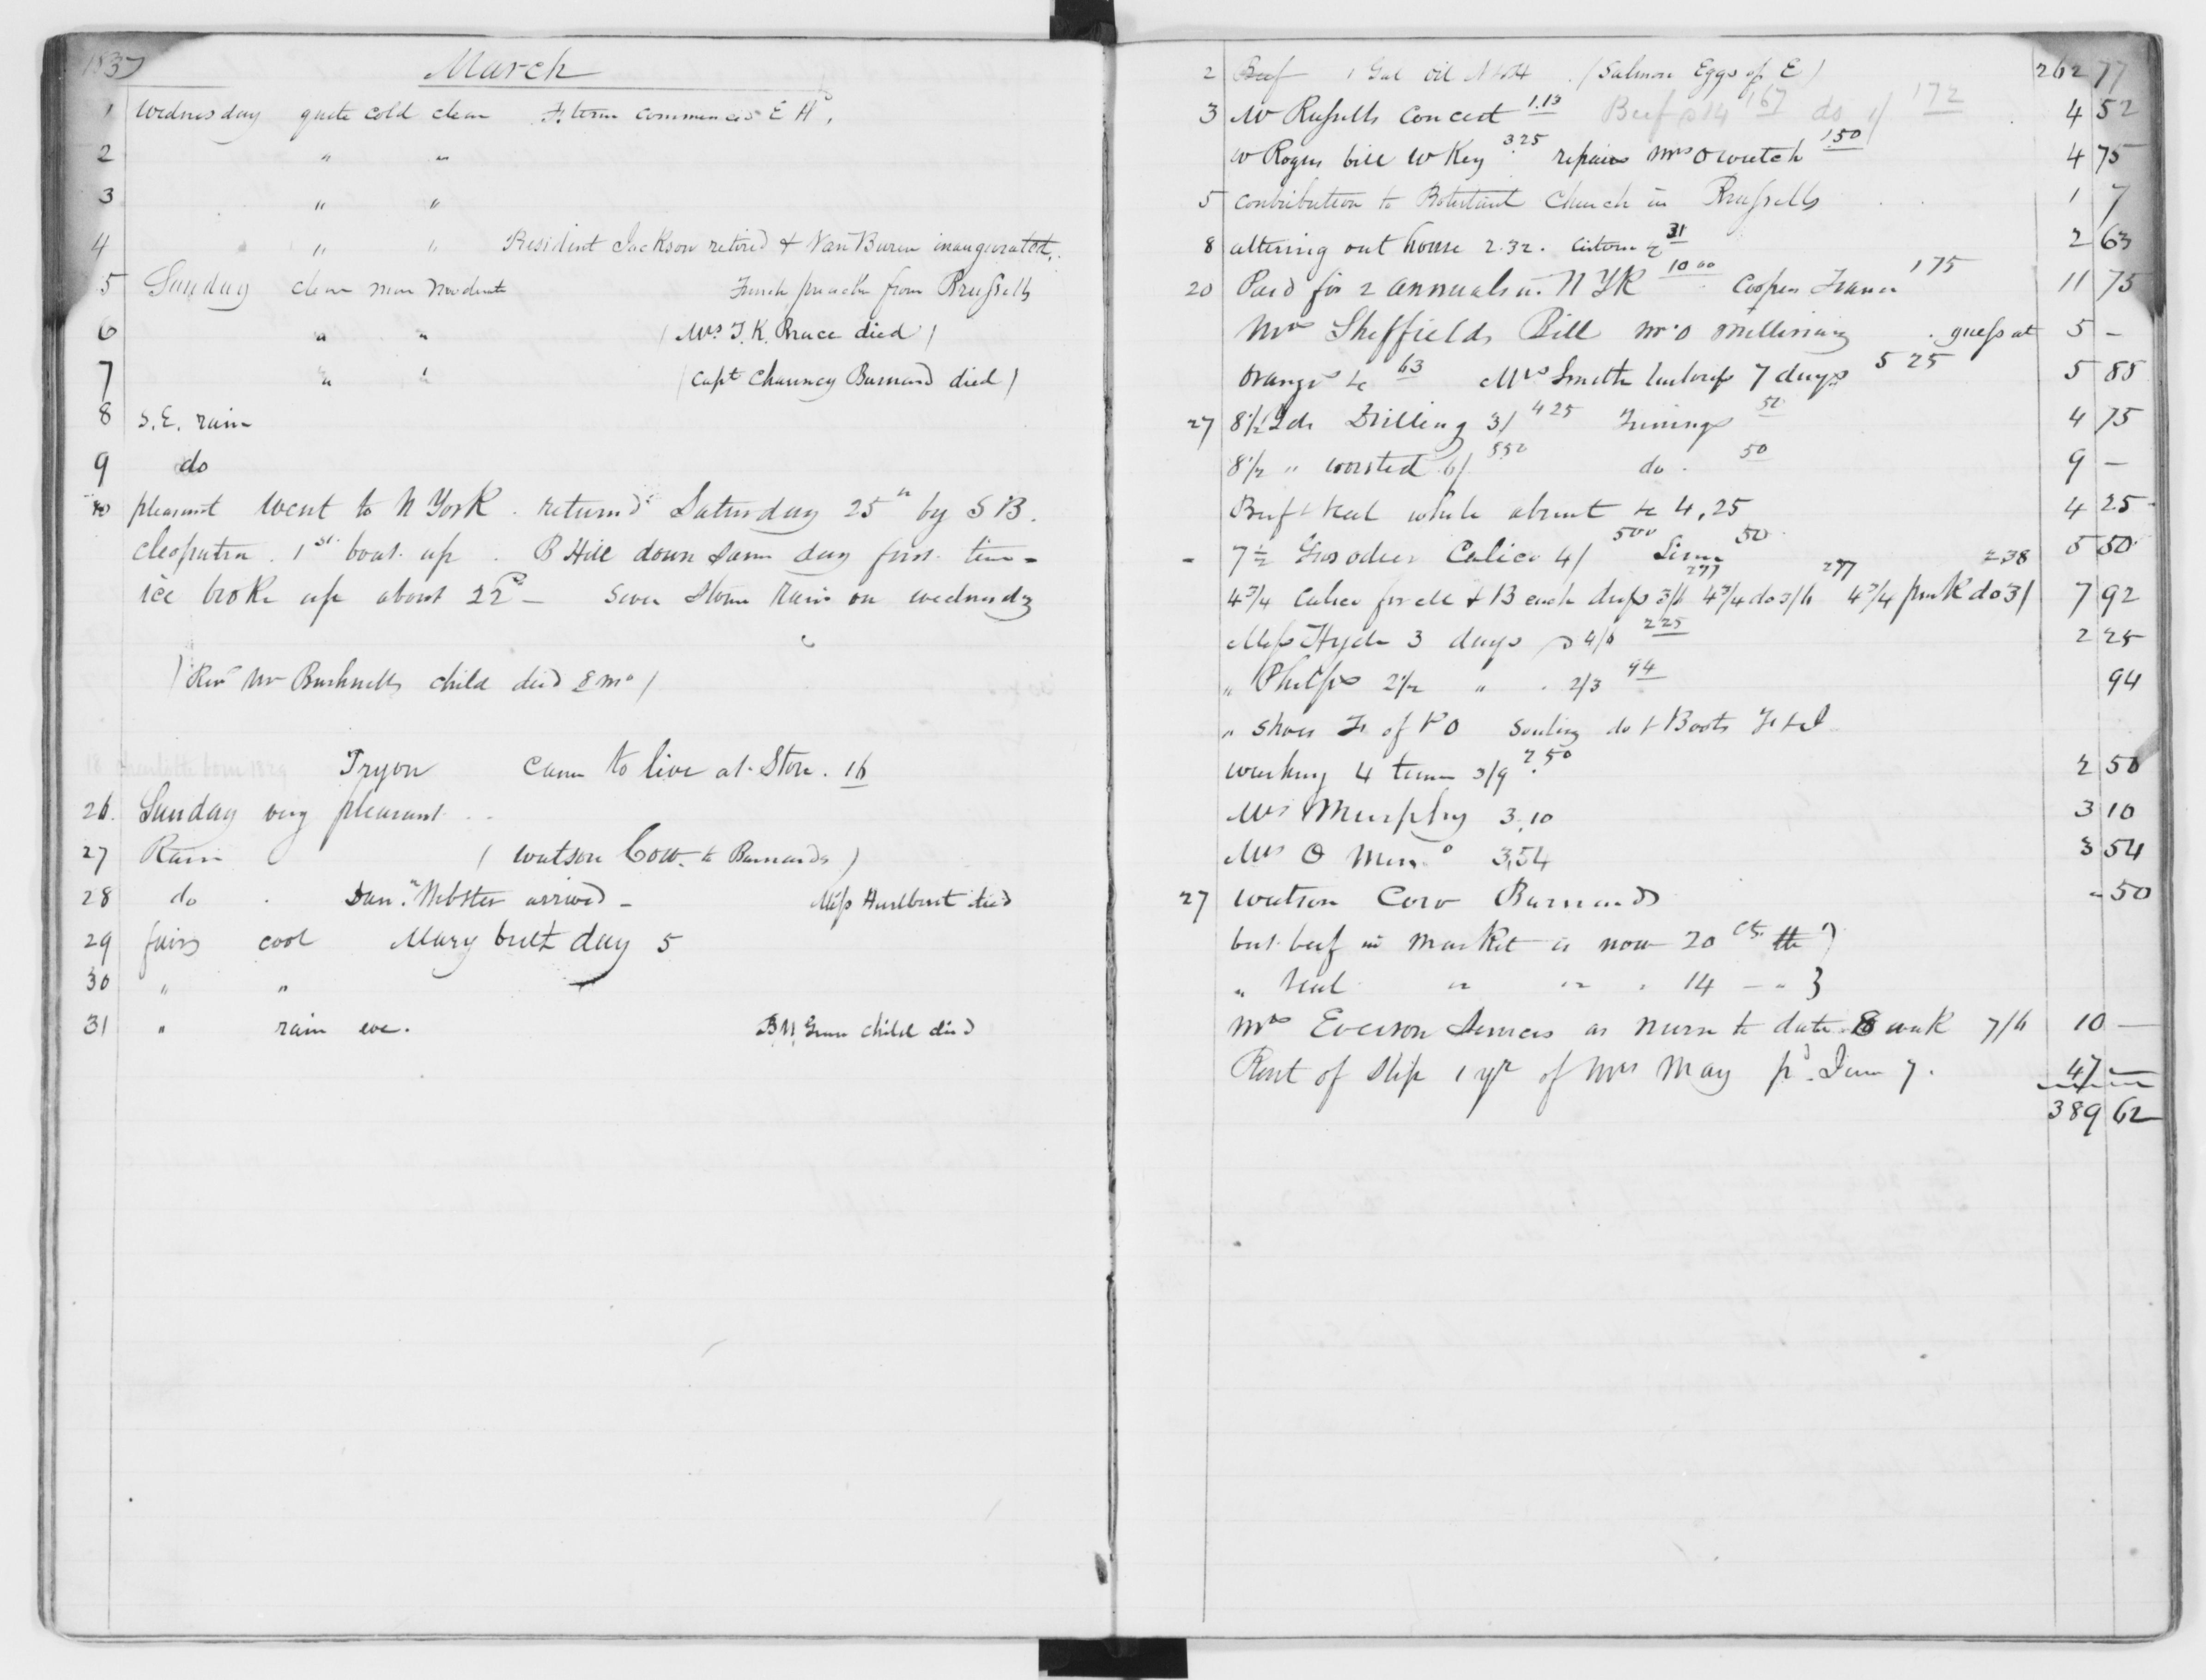 1837
March
1 Wednesday quite cold clear F. term commences E H
2 " "
3 " "
4 " " President Jackson retired & Van Buren inaugurated.
5 Sunday clear more moderate French preacher from Brussells
6 " " (Mrs J. K. Brace died)
7 " " (Capt Chauncey Barnard died)
8 S.E. rain
9 do
10 pleasant went to N York. returnd Saturday 25th by S B.
Cleopatra. 1st boat up. B Hill down same day first time -
ice broke up about 22d - Severe Storm Rain on wednesdy
(Revd Mr Bushnells child died 8 mo)
18 Charlotte born 1829 Tryon came to live at Store. 16
26. Sunday very pleasant
27 Rain (Watson Cow to Barnards)
28 do Danl Webster arrived - Miss Hurlburt died
29 fair cool Mary birth day 5
30 " "
31 " rain eve. child died
2 Beef 1 Gal oil (Salmon Eggs of E) 262 77
3 Mr Russells Concert 1.13 Beef 14 1.67 do 172 4 52
W Rogers bill W Key 3.25 repairs Mrs O watch 1.50 4 75
5 contribution to Protestant Church in Brussells 1 7
8 altering out house 2.32. cistern 31 2 63
20 Paid for 2 annuals in N YK 10 00 Coopers France 1 75 11 75
Mrs Sheffields Bill Mrs O millinery guess at 5 -
Oranges &c 63 Mrs Smith 7 days 5 25 5 88
27 8 1/2 Yds Drilling 3/ 4 25 Trimings 50 4 75
8 1/2 " worsted 6/ 8 50 do 50 9 -
Beef & Veal while absent &c 4,25 4 25
- 7 1/2 Calico 4/ 5 00 50 5 50
4 3/4 Calico for M & B each dress 3/6 277 4 3/4 do 3/6 277 4 3/4 pink do 3/ 2 38 7 92
Miss Hyde 3 days 4/6 2 25 2 25
" Phelps 2 1/2 " 2/3 94 94
" Shoes of Boots
washing 4 times 3/9 2.50 2 50
Mrs Murphy 3,10 3 10
Mrs O 3,54 3 54
27 Watson Cow Barnards - 50
but beef in market is now 20 cts lb
" Veal " " " 14 - "
Mrs Everson Services as nurse to date 8 week 7/6 10 -
Rent of Slip 1 yr of Mrs May pd. June 7. 47 -
389 62